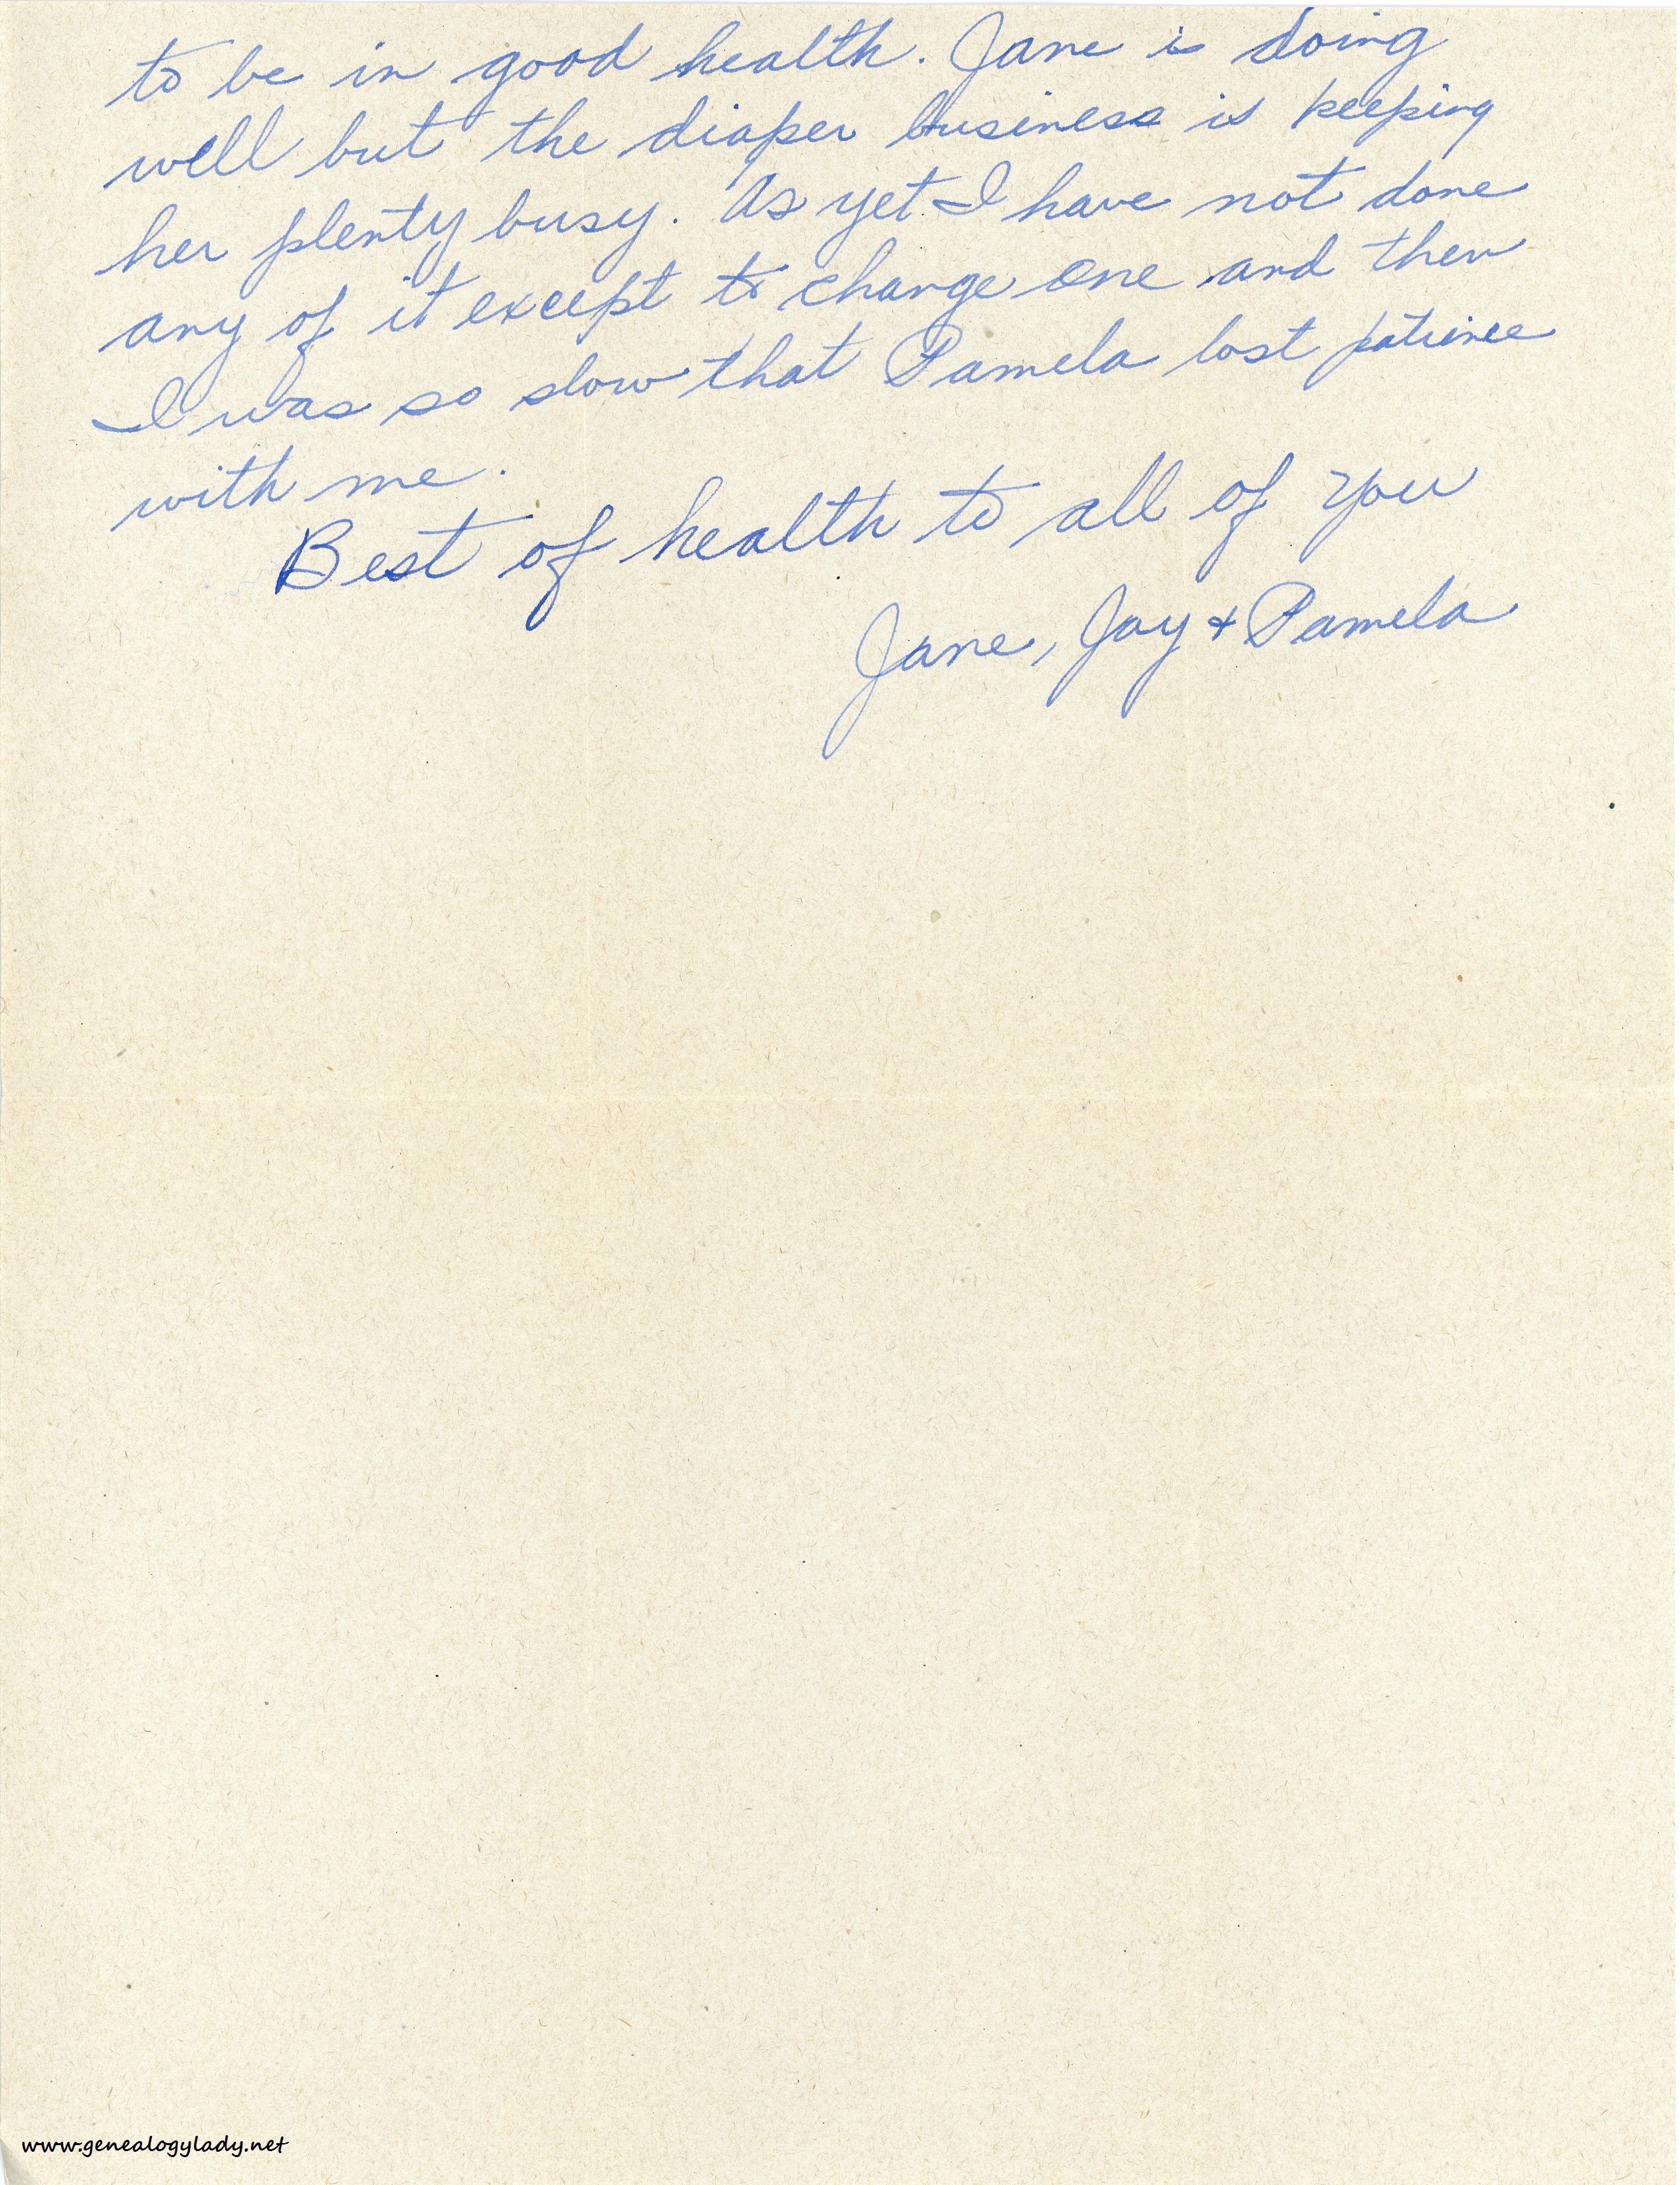 to be in good health. Jane is doing
well but the diaper business is keeping
her plenty busy. As yet I have not done
any of it except to change one and then
I was so slow that Pamela lost patience
with me.
Best of health to all of you
Jane, Jay + Pamela
www.genealogylady.net